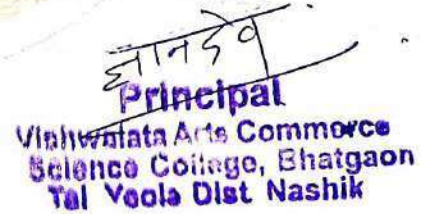 ज्ञानदेव
Principal
Vishwalata Arts Commerce
Science College, Bhatgaon
Tal Yeola Dist. Nashik